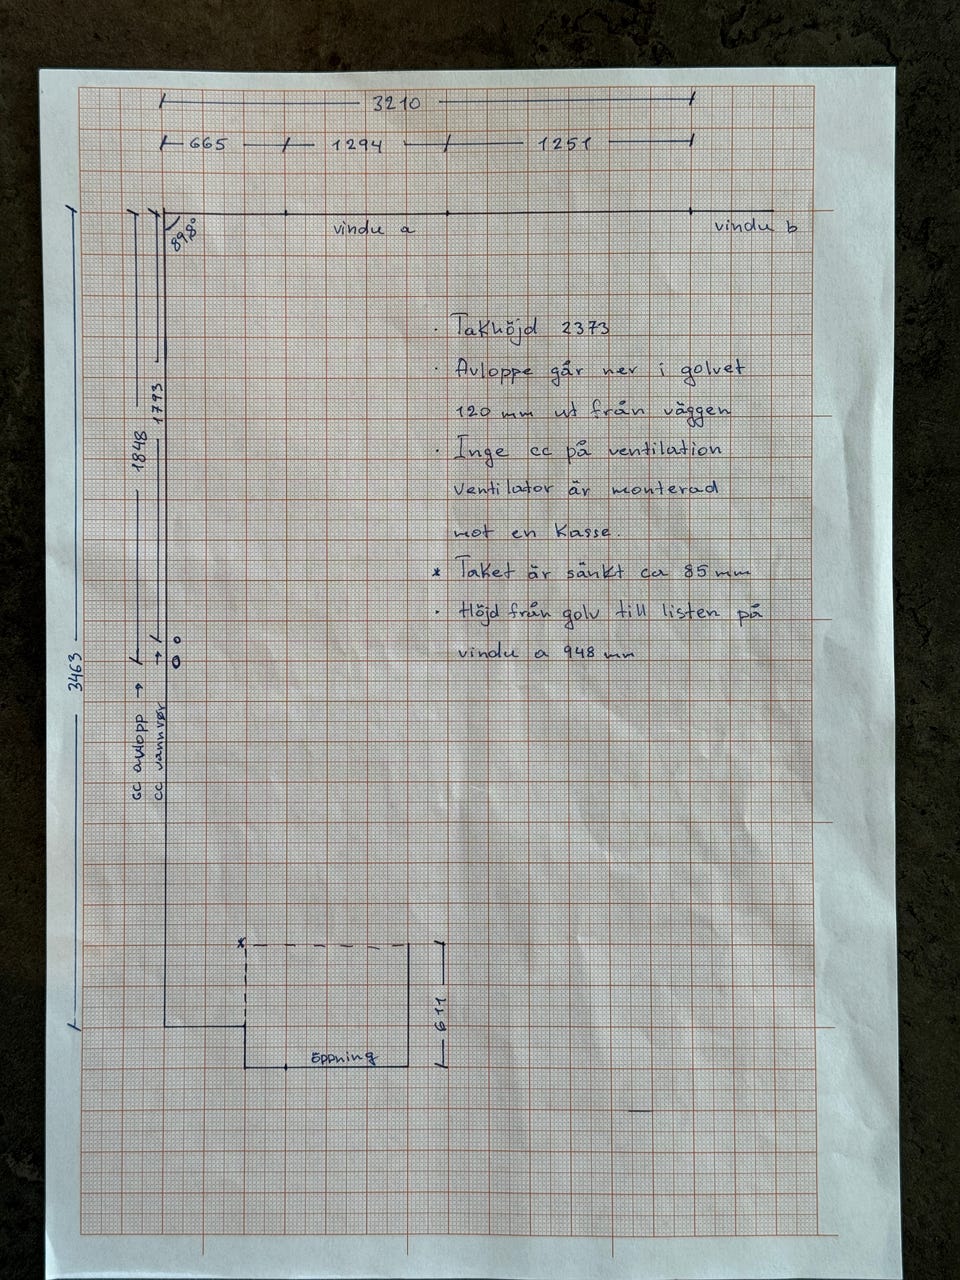 3210
665 1294 1251
89,8°
vindu a
vindu b
· Takhöjd 2373
· Avloppe går ner i golvet
120 mm ut från väggen
· Inge cc på ventilation
Ventilator är monterad
mot en Kasse.
* Taket är sänkt ca 85 mm
· Höjd från golv till listen på
vindu a 948 mm
3463
1848
cc avlopp →
1793
cc vannrør →
*
611
öppning